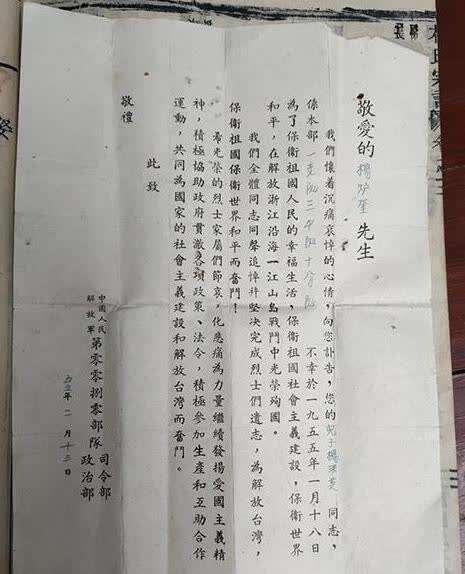 敬愛的楊奎先生
我們懷着沉痛哀悼的心情，向您訃告，您的兒子楊同志，
係本部三十不幸於一九五五年一月十八日
為了保衛祖國人民的幸福生活，保衛祖國社會主義建設，保衛世界
和平，在解放浙江沿海一江山島戰鬥中光榮殉國。
我們全體同志同聲追悼并堅决完成烈士們遺志，為解放台灣，
保衛祖國保衛世界和平而奮鬥！
希光榮的烈士家屬們節哀，化悲痛為力量繼續發揚愛國主義精
神，積極協助政府貫澈各項政策、法令，積極參加生產和互助合作
運動，共同為國家的社會主義建設和解放台灣而奮鬥。
此致
敬禮
中國人民
解放軍
第零零捌零部隊
司令部
政治部
五五年二月十三日